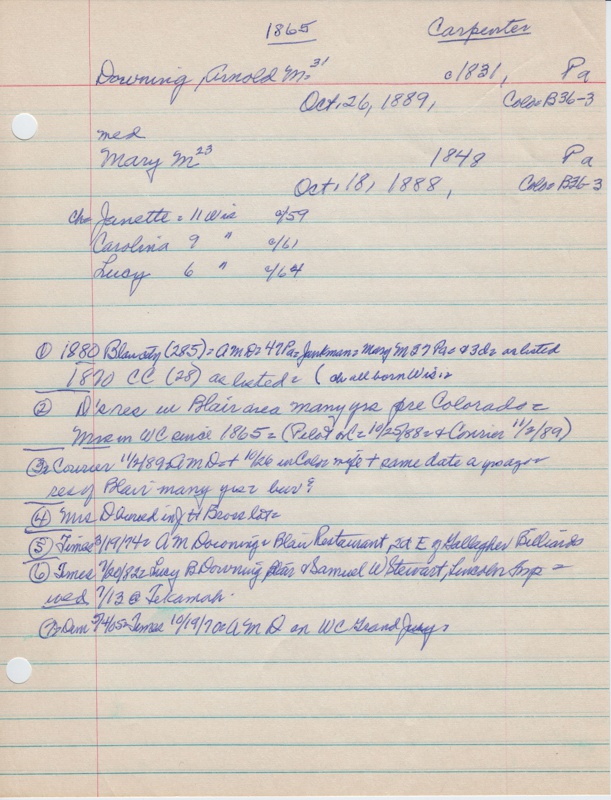 1865 Carpenter
Downing, Arnold M= 31 c1831, Pa
Oct. 26, 1889, Colo= B36-3
med
Mary M 23 1848 Pa
Oct. 18, 1888, Colo= B36-3
ch= Janette = 11 Wis c/59
Carolina 9 " c/61
Lucy 6 " c/64
① 1880 Blair city (285)= A M D= 47 Pa= Junkman= Mary M 37 Pa= & 3 d= as listed
1870 CC (28) as listed= ( ch all born Wis=
② D's res in Blair area many yrs pre Colorado=
Mrs in WC since 1865= (Pilot 10/25/88= & Courier 11/2/89)
③= Courier 11/2/89= A M D= + 10/26 in Colo= wife + same date a yr ago=
res of Blair many yrs=
④ Mrs D buried in
⑤ Times 3/19/74= A M Downing= Blair Restaurant, 2d E of Gallagher Billiards
⑥ Times 7/20/82= Lucy B Downing, Blair & Samuel W Stewart, Lincoln Twp =
wed 7/13 @ Tekamah.
⑦= Times 10/19/70= A M D on WC Grand Jury=